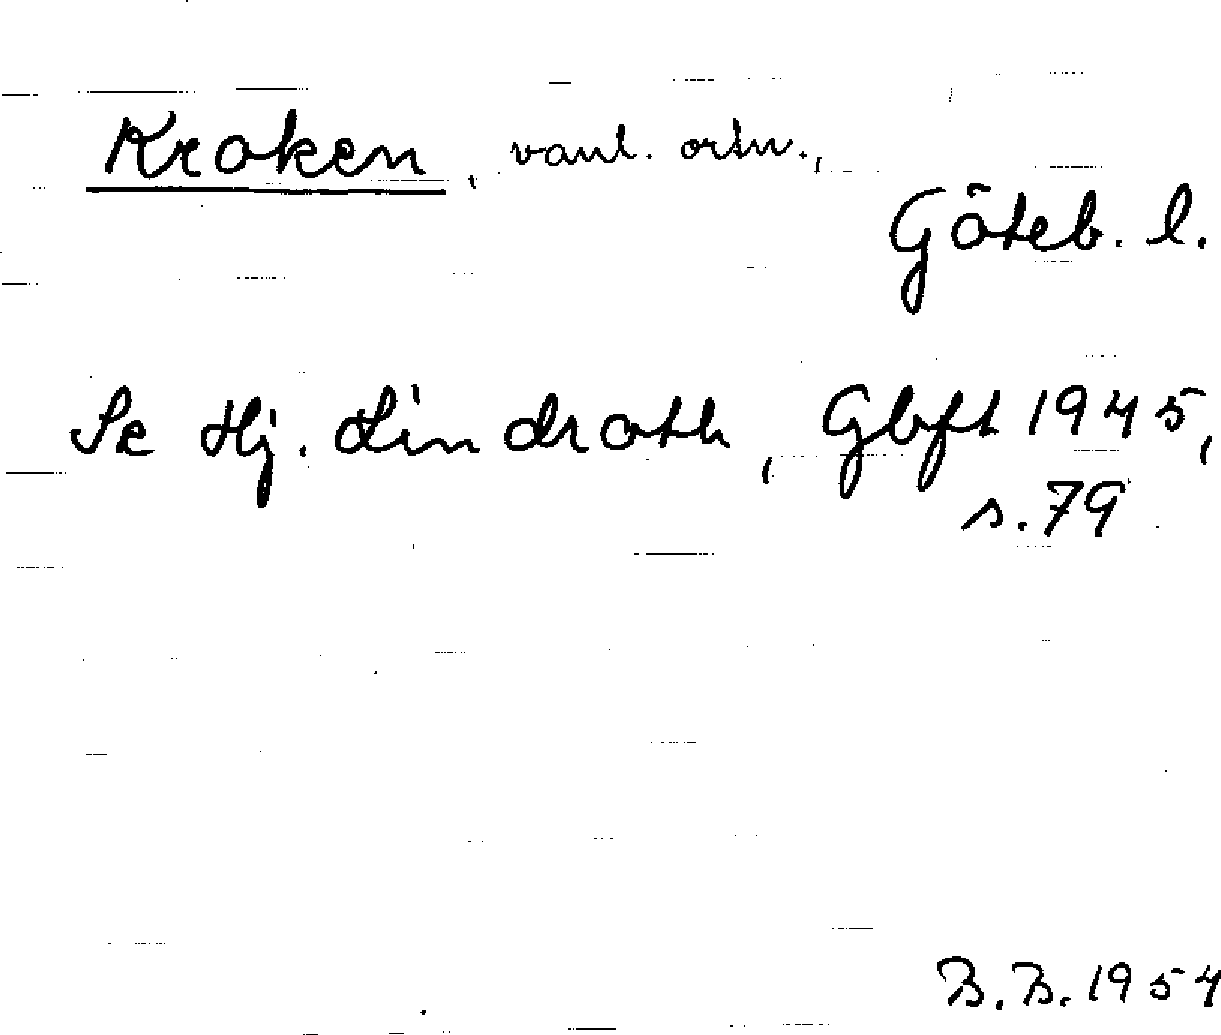 Kroken, vanl. ortn.,
Göteb. l.
Se Hj. Lindroth, Gbft 1945,
s. 79
B. B. 1954